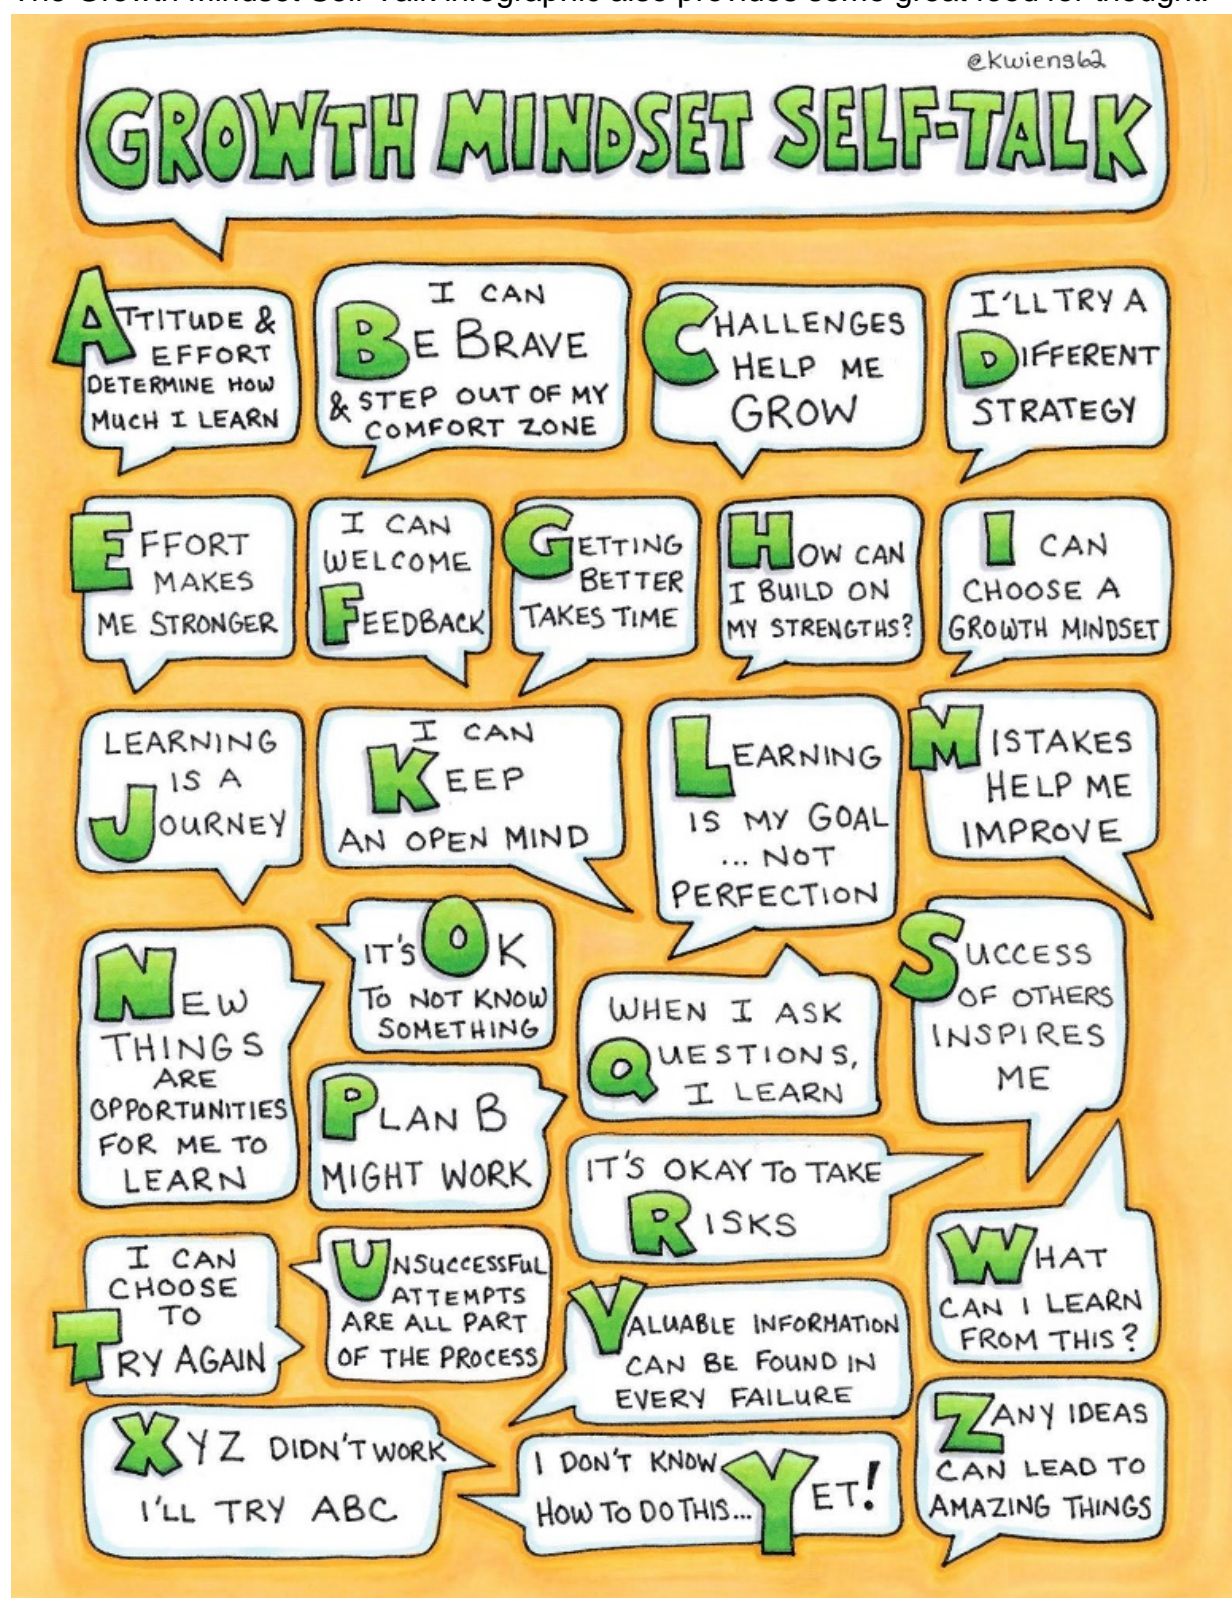 The Growth Mindset Self-Talk infographic also provides some great food for thought.
@kwiens62
GROWTH MINDSET SELF-TALK
ATTITUDE &
EFFORT
DETERMINE HOW
MUCH I LEARN
I CAN
BE BRAVE
& STEP OUT OF MY
COMFORT ZONE
CHALLENGES
HELP ME
GROW
I'LL TRY A
DIFFERENT
STRATEGY
EFFORT
MAKES
ME STRONGER
I CAN
WELCOME
FEEDBACK
GETTING
BETTER
TAKES TIME
HOW CAN
I BUILD ON
MY STRENGTHS?
I CAN
CHOOSE A
GROWTH MINDSET
LEARNING
IS A
JOURNEY
I CAN
KEEP
AN OPEN MIND
LEARNING
IS MY GOAL
... NOT
PERFECTION
MISTAKES
HELP ME
IMPROVE
NEW
THINGS
ARE
OPPORTUNITIES
FOR ME TO
LEARN
IT'S OK
TO NOT KNOW
SOMETHING
PLAN B
MIGHT WORK
WHEN I ASK
QUESTIONS,
I LEARN
IT'S OKAY TO TAKE
RISKS
SUCCESS
OF OTHERS
INSPIRES
ME
I CAN
CHOOSE
TO
TRY AGAIN
UNSUCCESSFUL
ATTEMPTS
ARE ALL PART
OF THE PROCESS
VALUABLE INFORMATION
CAN BE FOUND IN
EVERY FAILURE
WHAT
CAN I LEARN
FROM THIS?
XYZ DIDN'T WORK
I'LL TRY ABC
I DON'T KNOW
HOW TO DO THIS... YET!
ZANY IDEAS
CAN LEAD TO
AMAZING THINGS